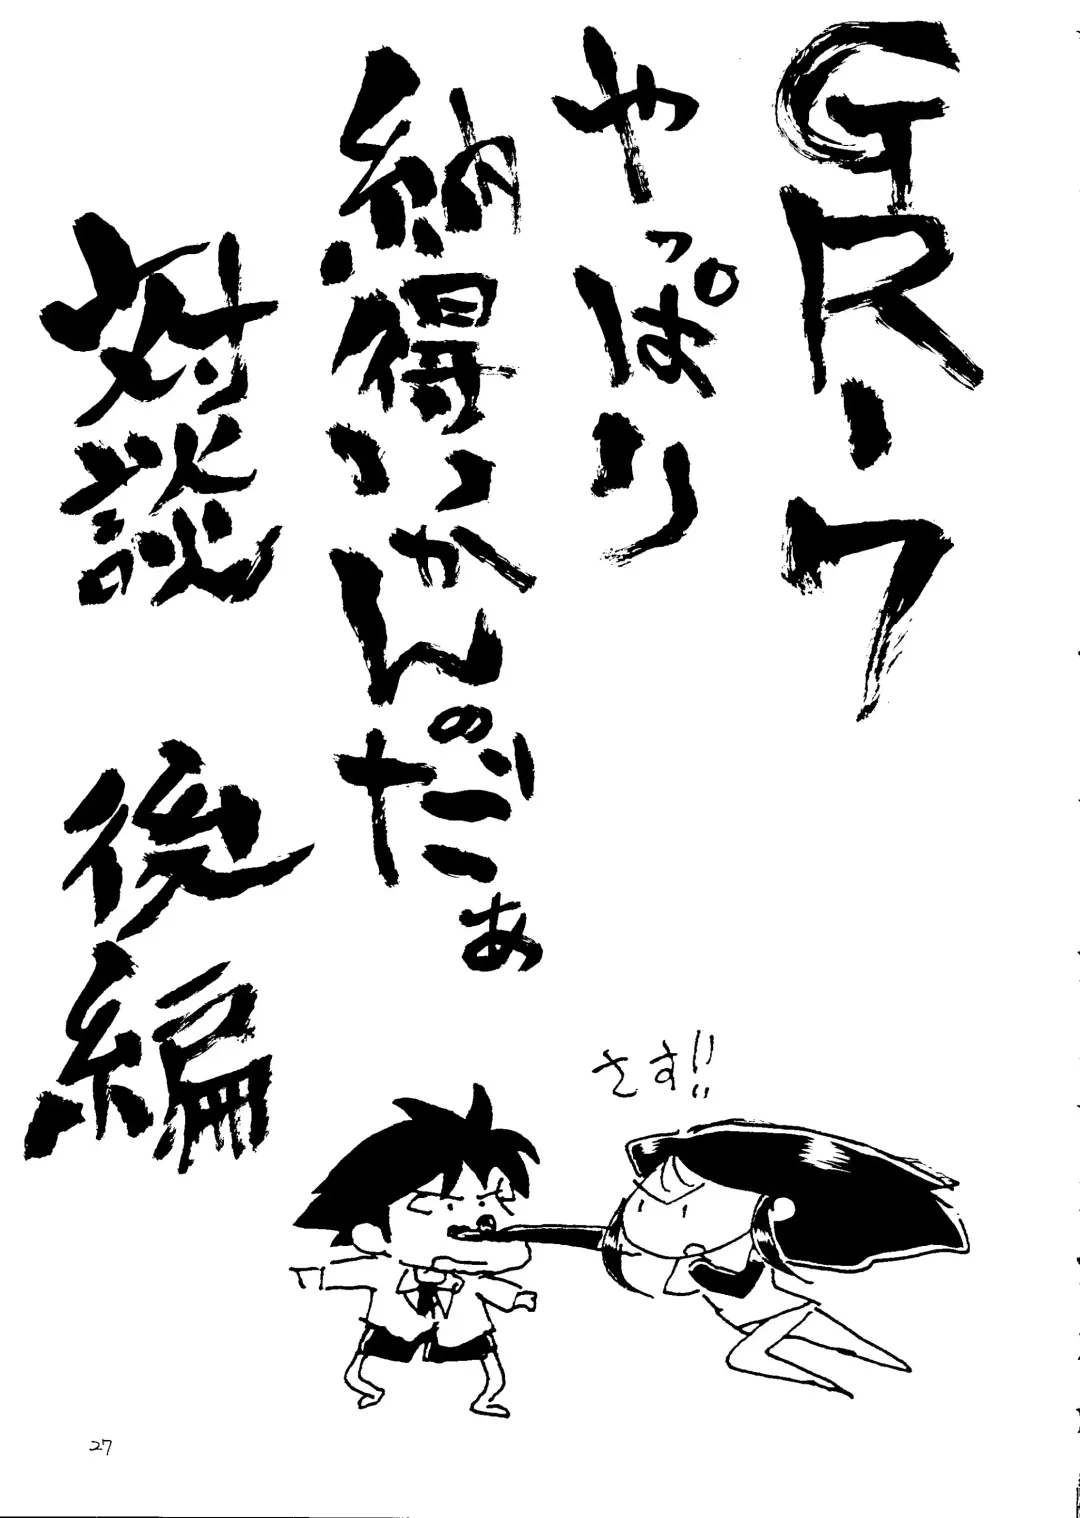 GR・ワ
やっぱり
納得いかんのだぁ
対談 後編
さす!!
27